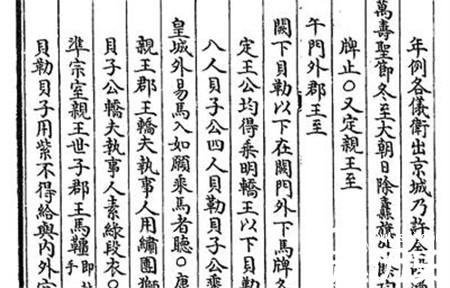 年例各儀衛出京城乃許全
萬壽聖節冬至大朝日除纛旗外餘
牌止○又定親王至
午門外郡王至
闕下貝勒以下在闕門外下馬牌
定王公均得乘明轎王以下貝勒
八人貝子公四人貝勒貝子公乘
皇城外易馬入如願乘馬者聽○
親王郡王轎夫執事人用繡團獅
貝子公轎夫執事人素綠段衣○
準宗室親王世子郡王馬韁即手
貝勒貝子用紫不得給與內外